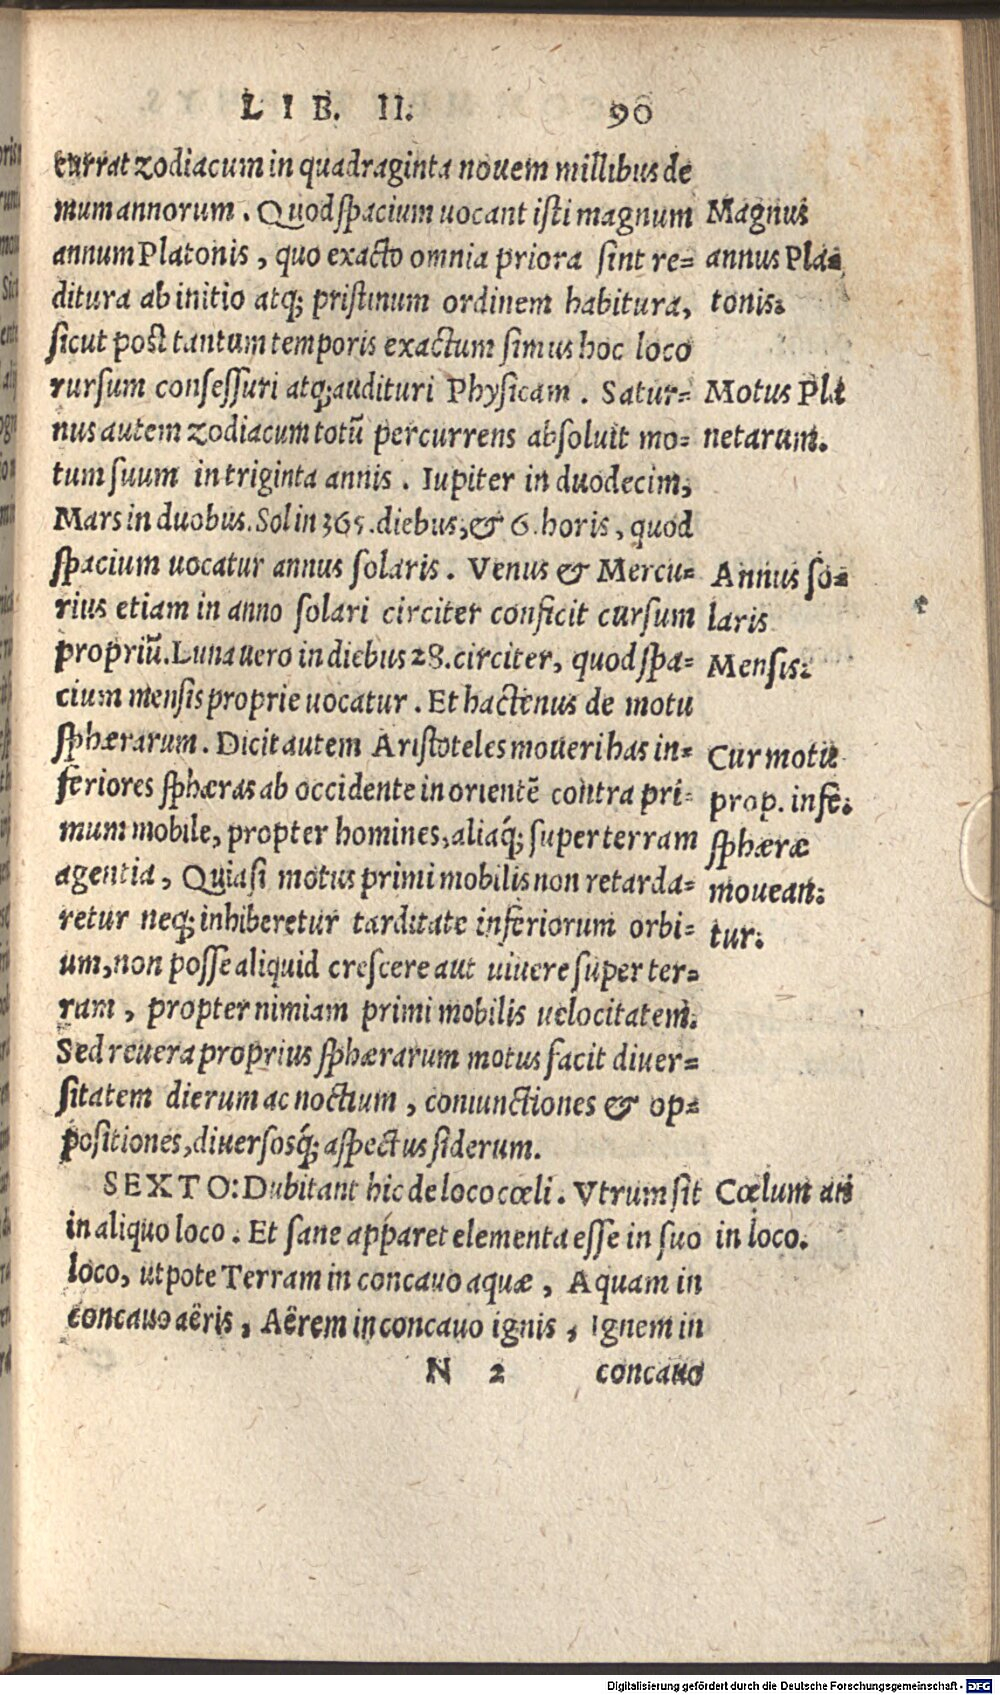 LIB. II. 90
currat zodiacum in quadraginta nouem millibus de
mum annorum. Quod spacium uocant isti magnum
annum Platonis, quo exacto omnia priora sint re-
ditura ab initio atq; pristinum ordinem habitura,
sicut post tantum temporis exactum simus hoc loco
rursum consessuri atq; audituri Physicam. Satur-
nus autem zodiacum totũ percurrens absoluit mo-
tum suum in triginta annis. Iupiter in duodecim,
Mars in duobus. Sol in 365. diebus, & 6. horis, quod
spacium uocatur annus solaris. Venus & Mercu-
rius etiam in anno solari circiter conficit cursum
propriũ. Luna uero in diebus 28. circiter, quod spa-
cium mensis proprie uocatur. Et hactenus de motu
sphærarum. Dicit autem Aristoteles moueri has in-
feriores sphæras ab occidente in orientẽ contra pri-
mum mobile, propter homines, aliaq́; super terram
agentia, Quiasi motus primi mobilis non retarda-
retur neq; inhiberetur tarditate inferiorum orbi-
um, non posse aliquid crescere aut uiuere super ter-
ram, propter nimiam primi mobilis uelocitatem.
Sed reuera proprius sphærarum motus facit diuer-
sitatem dierum ac noctium, coniunctiones & op-
positiones, diuersosq́; aspectus siderum.
SEXTO: Dubitant hic de loco cœli. Vtrum sit
in aliquo loco. Et sane apparet elementa esse in suo
loco, utpote Terram in concauo aquæ, Aquam in
concauo aëris, Aërem in concauo ignis, Ignem in
N 2 concauo
Magnus
annus Pla-
tonis.
Motus Pla
netarum.
Annus so-
laris
Mensis.
Cur motu
prop. infe.
sphæræ
mouean-
tur.
Cœlum an
in loco.
Digitalisierung gefördert durch die Deutsche Forschungsgemeinschaft - DFG